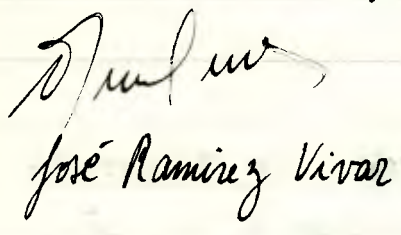 José Ramirez Vivar